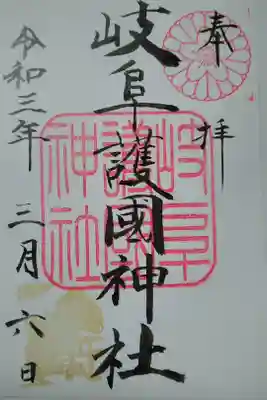 奉拝
岐阜護國神社
令和三年三月六日
岐阜
護國
神社